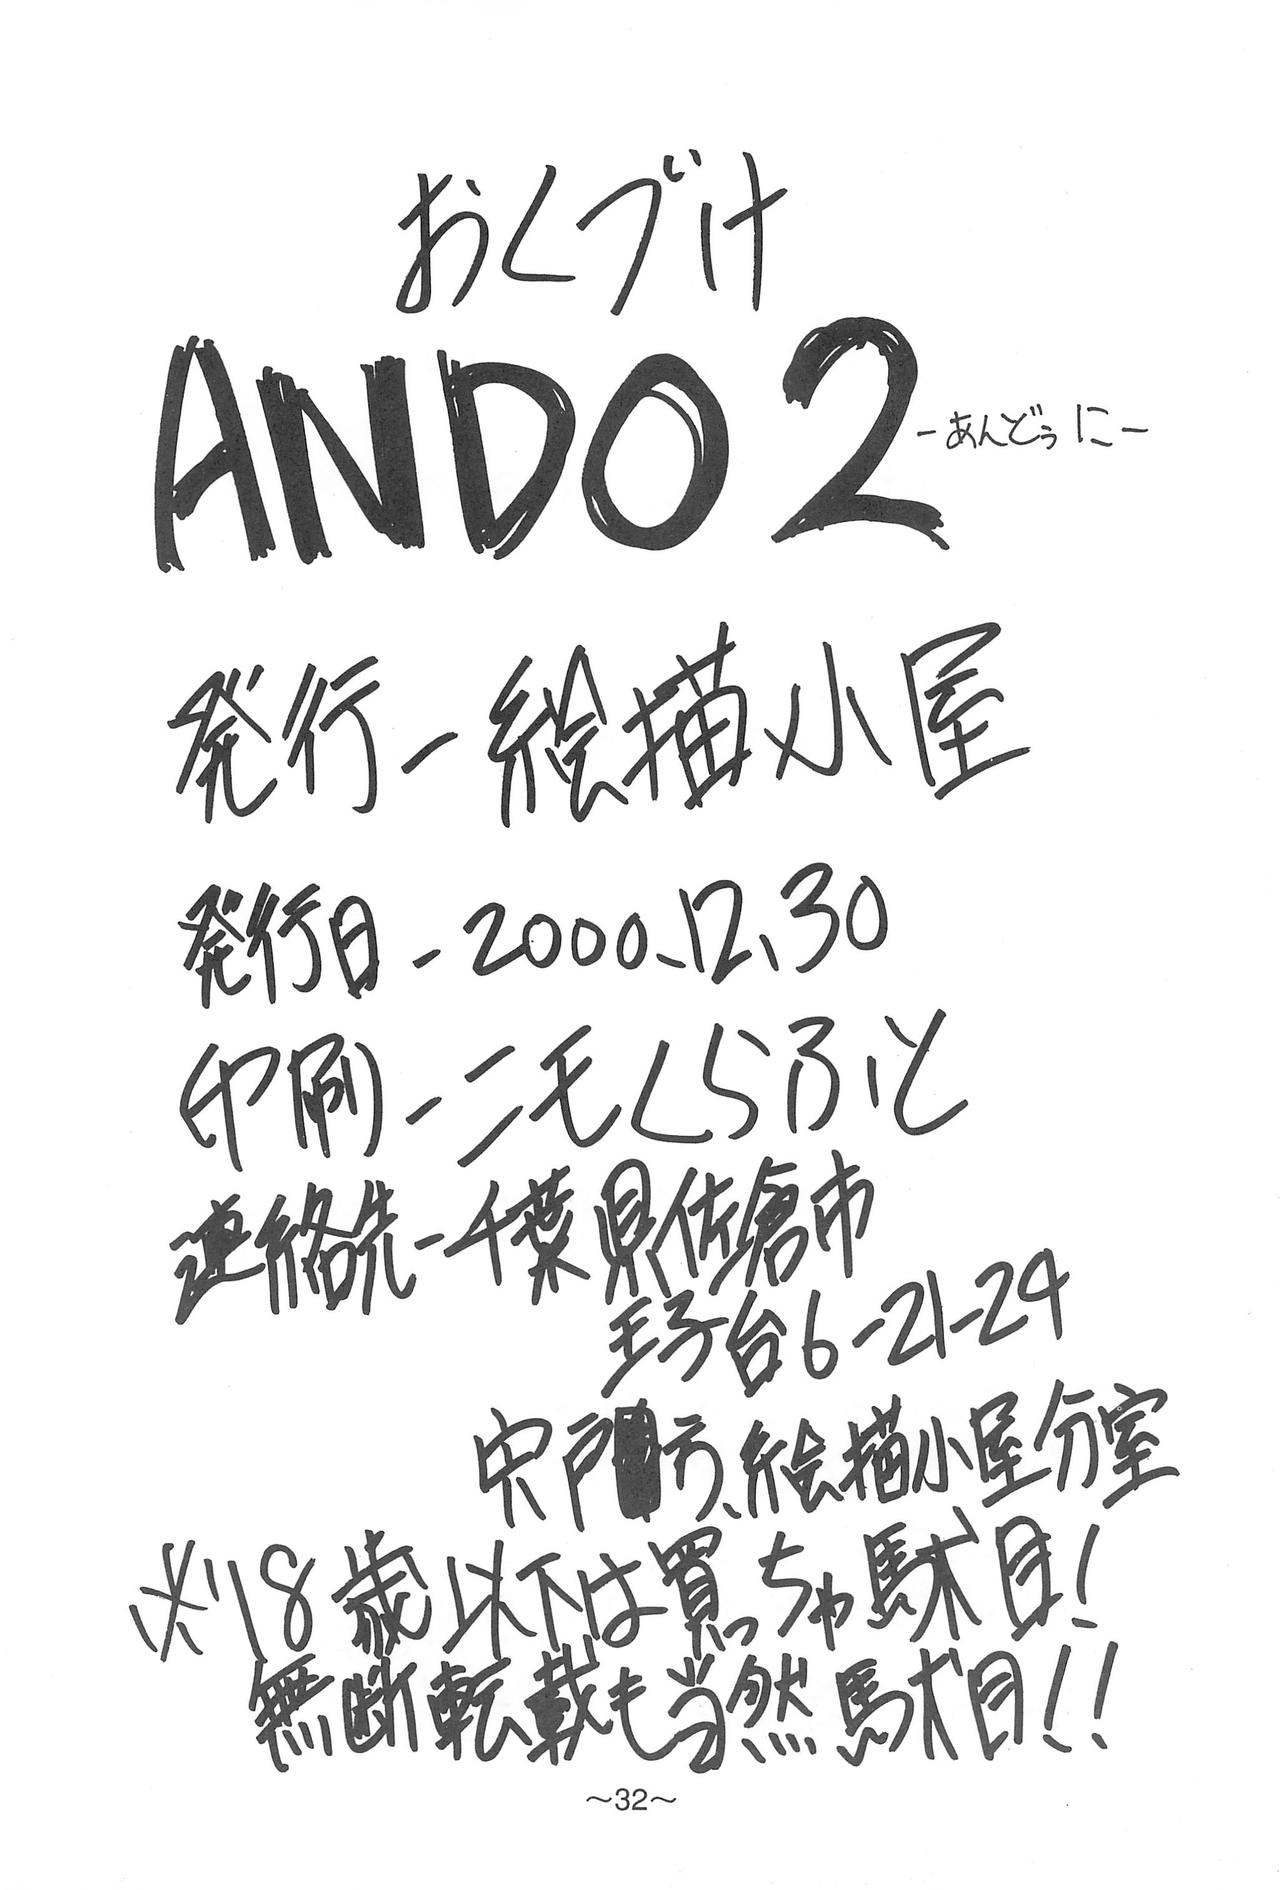 おくづけ
ANDO2 -あんどぅに-
発行-絵描小屋
発行日-2000.12.30
印刷-ニモくらふと
連絡先-千葉県佐倉市
王子台6-21-24
宍戸 方、絵描小屋分室
※18歳以下は買っちゃ駄目!
無断転載も当然駄目!!
~32~